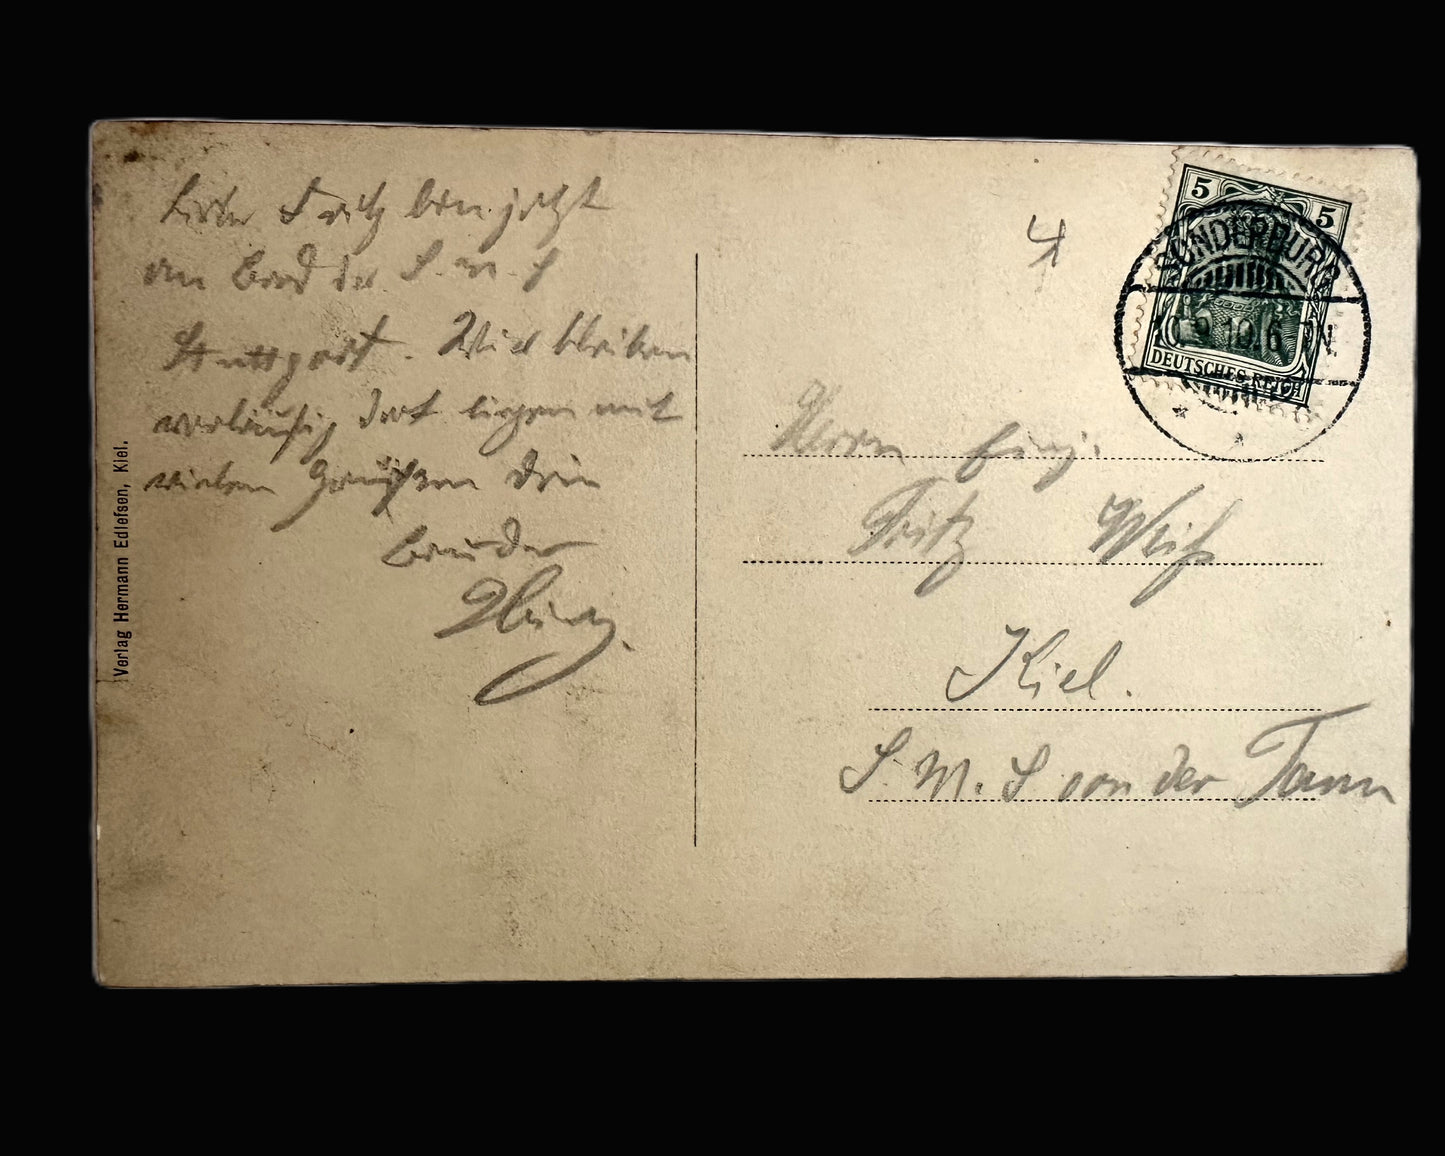 Lieber Fritz bin jetzt
an Bord der S. M. S
Stuttgart. Wir bleiben
vorläufig dort liegen mit
vielen Grüßen Dein
Bruder
Verlag Hermann Edlefsen, Kiel.
4
5 5
SONDERBURG
9.10.6 N.
DEUTSCHES REICH
Herrn
Fritz Weiß
Kiel.
S. M. S von der Tann